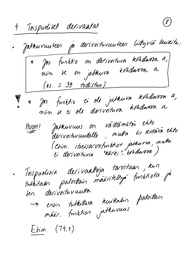 4 Toispuoliset derivaatat
①
• Jatkuvuuteen ja derivoituvuuteen liittyvä lauseita.
• Jos funktio on derivoituva kohdassa a,
niin se on jatkuva kohdassa a
(ks. s. 39 todistus)
• Jos funktio ei ole jatkuva kohdassa a,
niin se ei ole derivoituva kohdassa a.
Huom! Jatkuvuus on välttämätön ehto
derivoituvuudelle, mutta ei riittävä ehto
(esim. itseisarvofunktiot jatkuvia, mutta
ei derivoituvia "kärki"-kohdassa)
• Toispuolisia derivaattoja tarvitaan, kun
tutkitaan paloittain määriteltyjä funktioita ja
sen derivoituvuutta
→ ensin tutkittava kuitenkin paloittain
määr. funktion jatkuvuus
Esim. (74.1)